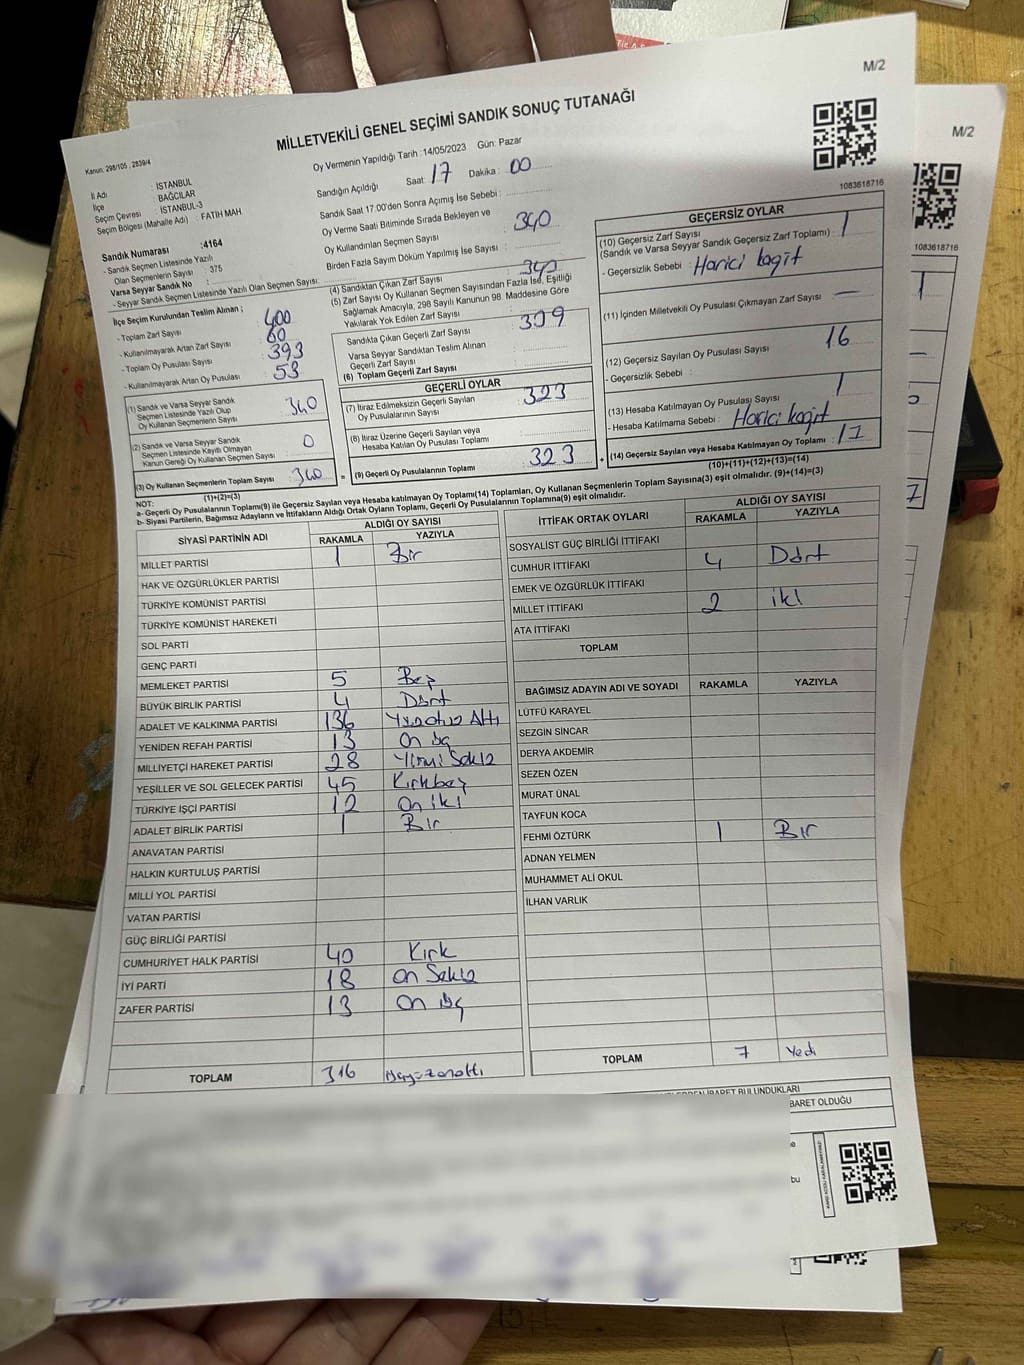 M/2
M/2
MİLLETVEKİLİ GENEL SEÇİMİ SANDIK SONUÇ TUTANAĞI
Kanun: 298/105 , 2839/4
İl Adı : İSTANBUL
İlçe : BAĞCILAR
Seçim Çevresi : İSTANBUL-3
Seçim Bölgesi (Mahalle Adı) : FATİH MAH
Sandık Numarası :4164
- Sandık Seçmen Listesinde Yazılı
Olan Seçmenlerin Sayısı : 375
Varsa Seyyar Sandık No :
- Seyyar Sandık Seçmen Listesinde Yazılı Olan Seçmen Sayısı:
Oy Vermenin Yapıldığı Tarih :14/05/2023 Gün: Pazar
Sandığın Açıldığı Saat: 17 Dakika : 00
Sandık Saat 17:00'den Sonra Açımış İse Sebebi :
Oy Verme Saati Bitiminde Sırada Bekleyen ve
Oy Kullandırılan Seçmen Sayısı 340
Birden Fazla Sayım Döküm Yapılmış İse Sayısı :
1083618716
1083618716
İlçe Seçim Kurulundan Teslim Alınan ;
- Toplam Zarf Sayısı : 400
- Kullanılmayarak Artan Zarf Sayısı : 60
- Toplam Oy Pusulası Sayısı : 393
- Kullanılmayarak Artan Oy Pusulası : 53
(1) Sandık ve Varsa Seyyar Sandık
Seçmen Listesinde Yazılı Olup
Oy Kullanan Seçmenlerin Sayısı : 340
(2) Sandık ve Varsa Seyyar Sandık
Seçmen Listesinde Kaydı Olmayan
Kanun Gereği Oy Kullanan Seçmen Sayısı : 0
(3) Oy Kullanan Seçmenlerin Toplam Sayısı : 340
(1)+(2)=(3)
(4) Sandıktan Çıkan Zarf Sayısı : 340
(5) Zarf Sayısı Oy Kullanan Seçmen Sayısından Fazla İse, Eşitliği
Sağlamak Amacıyla, 298 Sayılı Kanunun 98. Maddesine Göre
Yakılarak Yok Edilen Zarf Sayısı :
Sandıkta Çıkan Geçerli Zarf Sayısı : 339
Varsa Seyyar Sandıktan Teslim Alınan
Geçerli Zarf Sayısı :
(6) Toplam Geçerli Zarf Sayısı :
GEÇERLİ OYLAR
(7) İtiraz Edilmeksizin Geçerli Sayılan
Oy Pusulalarının Sayısı : 323
(8) İtiraz Üzerine Geçerli Sayılan veya
Hesaba Katılan Oy Pusulası Toplamı :
= (9) Geçerli Oy Pusulalarının Toplamı : 323 +
GEÇERSİZ OYLAR
(10) Geçersiz Zarf Sayısı
(Sandık ve Varsa Seyyar Sandık Geçersiz Zarf Toplamı) : 1
- Geçersizlik Sebebi : Harici kagit
(11) İçinden Milletvekili Oy Pusulası Çıkmayan Zarf Sayısı : —
(12) Geçersiz Sayılan Oy Pusulası Sayısı : 16
- Geçersizlik Sebebi :
(13) Hesaba Katılmayan Oy Pusulası Sayısı : 1
- Hesaba Katılmama Sebebi : Harici kağıt
(14) Geçersiz Sayılan veya Hesaba Katılmayan Oy Toplamı : 17
(10)+(11)+(12)+(13)=(14)
NOT:
a- Geçerli Oy Pusulalarının Toplamı(9) ile Geçersiz Sayılan veya Hesaba katılmayan Oy Toplamı(14) Toplamları, Oy Kullanan Seçmenlerin Toplam Sayısına(3) eşit olmalıdır. (9)+(14)=(3)
b- Siyasi Partilerin, Bağımsız Adayların ve İttifakların Aldığı Ortak Oyların Toplamı, Geçerli Oy Pusulalarının Toplamına(9) eşit olmalıdır.
SİYASİ PARTİNİN ADI ALDIĞI OY SAYISI
RAKAMLA YAZIYLA
MİLLET PARTİSİ 1 Bir
HAK VE ÖZGÜRLÜKLER PARTİSİ
TÜRKİYE KOMÜNİST PARTİSİ
TÜRKİYE KOMÜNİST HAREKETİ
SOL PARTİ
GENÇ PARTİ
MEMLEKET PARTİSİ 5 Beş
BÜYÜK BİRLİK PARTİSİ 4 Dört
ADALET VE KALKINMA PARTİSİ 136 Yüzotuz Altı
YENİDEN REFAH PARTİSİ 13 On üç
MİLLİYETÇİ HAREKET PARTİSİ 28 Yirmi Sekiz
YEŞİLLER VE SOL GELECEK PARTİSİ 45 Kırkbeş
TÜRKİYE İŞÇİ PARTİSİ 12 On iki
ADALET BİRLİK PARTİSİ 1 Bir
ANAVATAN PARTİSİ
HALKIN KURTULUŞ PARTİSİ
MİLLİ YOL PARTİSİ
VATAN PARTİSİ
GÜÇ BİRLİĞİ PARTİSİ
CUMHURİYET HALK PARTİSİ 40 Kırk
İYİ PARTİ 18 On Sekiz
ZAFER PARTİSİ 13 On üç
TOPLAM 316 üçyüzonaltı
İTTİFAK ORTAK OYLARI ALDIĞI OY SAYISI
RAKAMLA YAZIYLA
SOSYALİST GÜÇ BİRLİĞİ İTTİFAKI
CUMHUR İTTİFAKI 4 Dört
EMEK VE ÖZGÜRLÜK İTTİFAKI
MİLLET İTTİFAKI 2 iki
ATA İTTİFAKI
TOPLAM
BAĞIMSIZ ADAYIN ADI VE SOYADI RAKAMLA YAZIYLA
LÜTFÜ KARAYEL
SEZGİN SİNCAR
DERYA AKDEMİR
SEZEN ÖZEN
MURAT ÜNAL
TAYFUN KOCA
FEHMİ ÖZTÜRK 1 Bir
ADNAN YELMEN
MUHAMMET ALİ OKUL
İLHAN VARLIK
TOPLAM 7 Yedi
BARET OLDUĞU